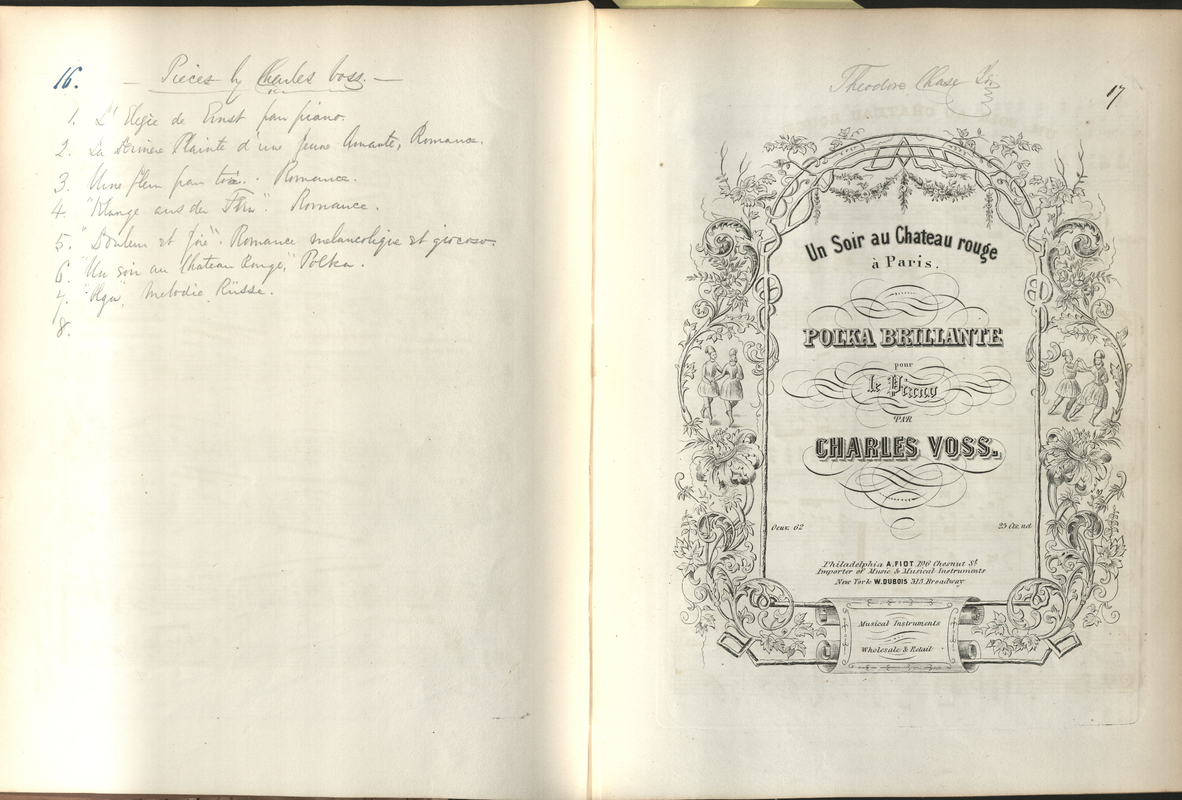 16.
— Pieces by Charles Voss. —
1. L'Elegie de Ernst pour piano.
2. La Derniere Plainte d'une Jeune Amante, Romance.
3. Une fleur pour toi. Romance.
4. "Klange aus der Fern". Romance.
5. "Douleur et Joie". Romance melancolique et giocoso.
6. "Un soir au Chateau Rouge," Polka.
7. "Olga", Melodie Russe.
8.
Theodore Chase
17
Un Soir au Chateau rouge
à Paris.
POLKA BRILLANTE
pour
le Piano
PAR
CHARLES VOSS.
Oeuv. 62
25 Cts. net
Philadelphia A. FIOT 196 Chesnut St.
Importer of Music & Musical Instruments
New York W. DUBOIS 315 Broadway
Musical Instruments
Wholesale & Retail